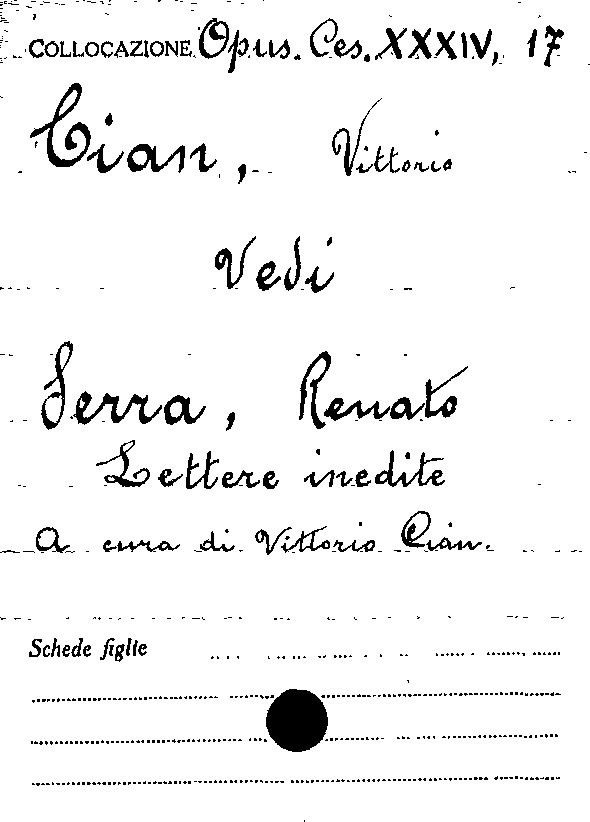 COLLOCAZIONE Opus. Ces. XXXIV, 17
Cian, Vittorio
Vedi
Serra, Renato
Lettere inedite
A cura di Vittorio Cian.
Schede figlie